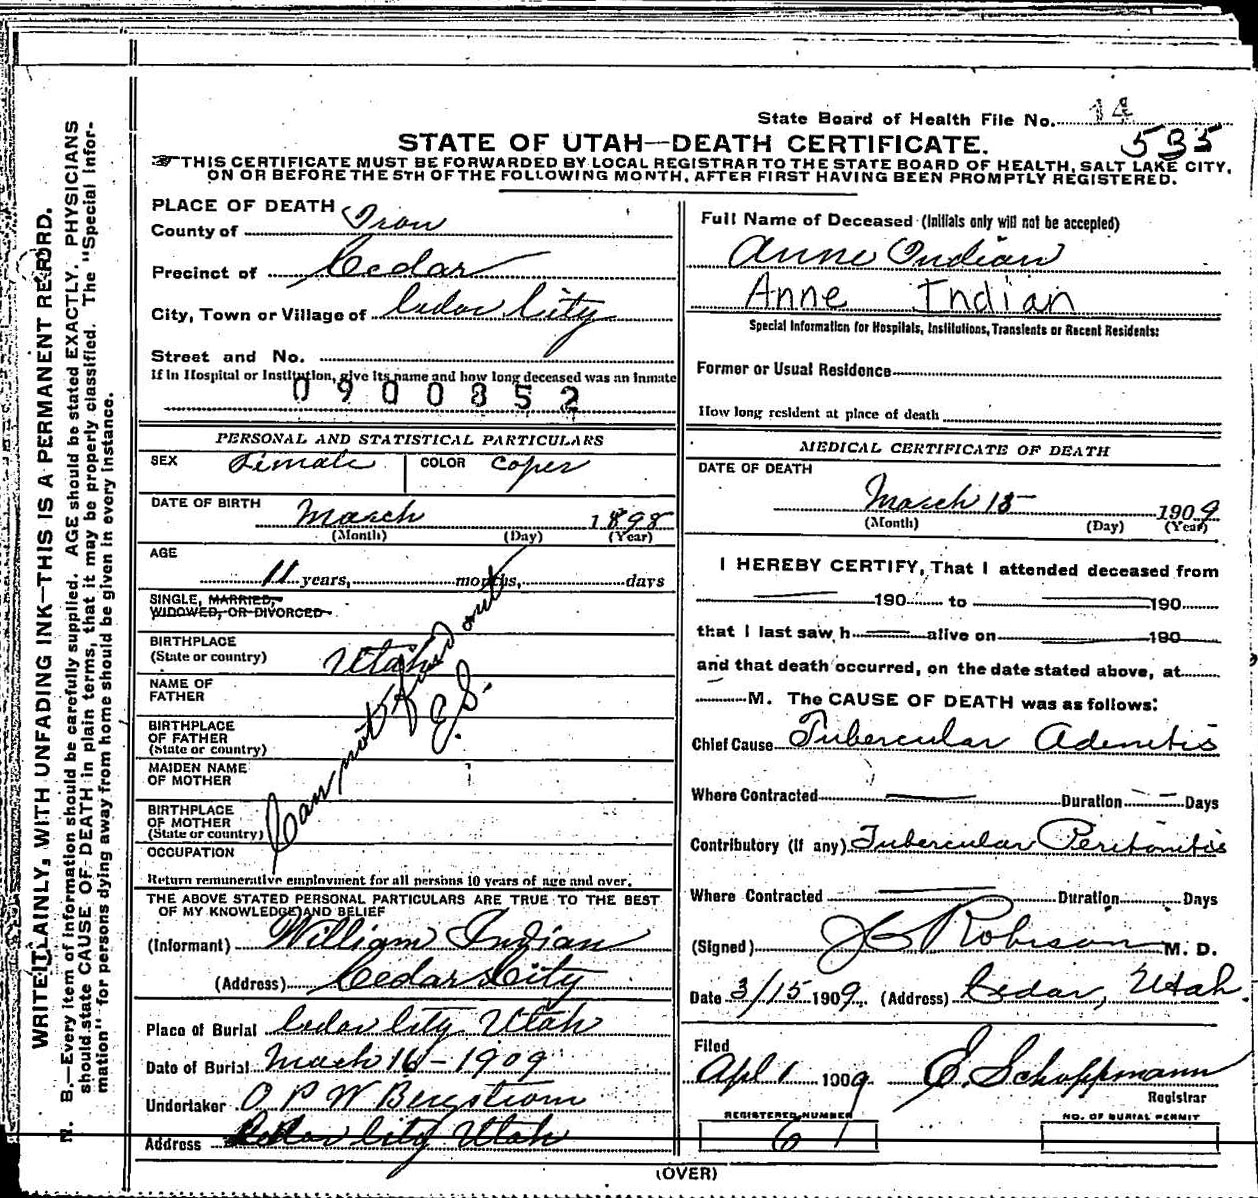 State Board of Health File No. 14
535
STATE OF UTAH—DEATH CERTIFICATE.
THIS CERTIFICATE MUST BE FORWARDED BY LOCAL REGISTRAR TO THE STATE BOARD OF HEALTH, SALT LAKE CITY,
ON OR BEFORE THE 5TH OF THE FOLLOWING MONTH, AFTER FIRST HAVING BEEN PROMPTLY REGISTERED.
WRITE PLAINLY, WITH UNFADING INK—THIS IS A PERMANENT RECORD.
N. B.—Every item of information should be carefully supplied. AGE should be stated EXACTLY. PHYSICIANS
should state CAUSE OF DEATH in plain terms, that it may be properly classified. The "Special Infor-
mation" for persons dying away from home should be given in every instance.
PLACE OF DEATH
County of Iron
Precinct of Cedar
City, Town or Village of Cedar City
Street and No.
If in Hospital or Institution, give its name and how long deceased was an inmate
0900352
PERSONAL AND STATISTICAL PARTICULARS
SEX Female COLOR Coper
DATE OF BIRTH March 1898
(Month) (Day) (Year)
AGE
11 years, months, days
SINGLE, MARRIED,
WIDOWED, OR DIVORCED
BIRTHPLACE
(State or country) Utah
NAME OF
FATHER
BIRTHPLACE
OF FATHER
(State or country)
MAIDEN NAME
OF MOTHER
BIRTHPLACE
OF MOTHER
(State or country)
Can not find out
E.S.
OCCUPATION
Return remunerative employment for all persons 10 years of age and over.
THE ABOVE STATED PERSONAL PARTICULARS ARE TRUE TO THE BEST
OF MY KNOWLEDGE AND BELIEF
(Informant) William Indian
(Address) Cedar City
Place of Burial Cedar City Utah
Date of Burial March 16-1909
Undertaker O P W Bergstrom
Address Cedar City Utah
Full Name of Deceased (Initials only will not be accepted)
Anne Indian
Anne Indian
Special Information for Hospitals, Institutions, Transients or Recent Residents:
Former or Usual Residence
How long resident at place of death
MEDICAL CERTIFICATE OF DEATH
DATE OF DEATH
March 15 1909
(Month) (Day) (Year)
I HEREBY CERTIFY, That I attended deceased from
190 to 190
that I last saw h alive on 190
and that death occurred, on the date stated above, at
M. The CAUSE OF DEATH was as follows:
Chief Cause Tubercular Adenitis
Where Contracted Duration Days
Contributory (if any) Tubercular Peritonitis
Where Contracted Duration Days
(Signed) Robinson M. D.
Date 3/15 1909. (Address) Cedar, Utah.
Filed
Apl 1 1909 E. Schoppmann
Registrar
REGISTERED NUMBER
61
NO. OF BURIAL PERMIT
(OVER)